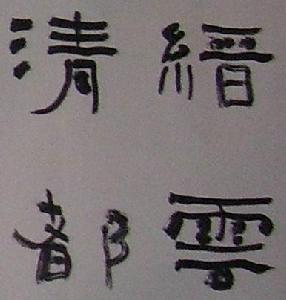 縉雲
清都